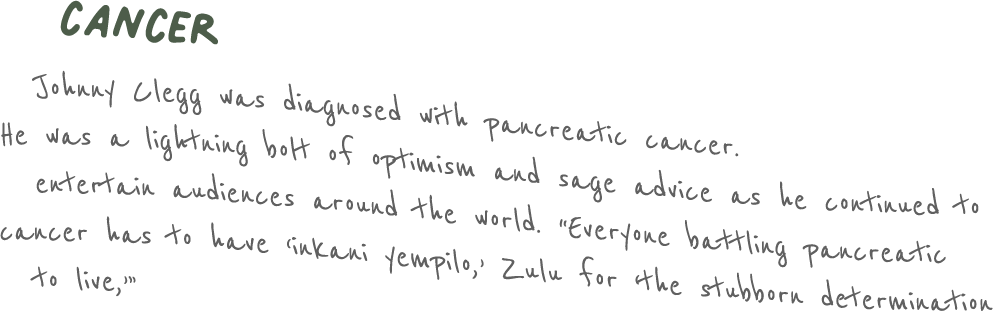 CANCER
Johnny Clegg was diagnosed with pancreatic cancer.
He was a lightning bolt of optimism and sage advice as he continued to
entertain audiences around the world. "Everyone battling pancreatic
cancer has to have 'inkani yempilo,' Zulu for 'the stubborn determination
to live,'"